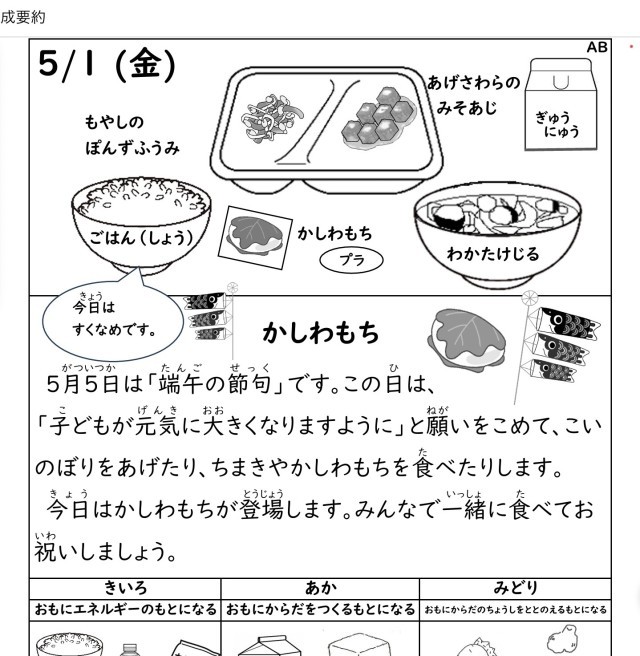 成要約
AB
5/1 (金)
あげさわらの
みそあじ
ぎゅう
にゅう
もやしの
ぽんずふうみ
ごはん(しょう)
かしわもち
プラ
わかたけじる
きょう
今日は
すくなめです。
かしわもち
がついつか たんご せっく ひ
5月5日は「端午の節句」です。この日は、
こ げんき おお ねが
「子どもが元気に大きくなりますように」と願いをこめて、こい
た
のぼりをあげたり、ちまきやかしわもちを食べたりします。
きょう とうじょう いっしょ た
今日はかしわもちが登場します。みんなで一緒に食べてお
いわ
祝いしましょう。
きいろ あか みどり
おもにエネルギーのもとになる おもにからだをつくるもとになる おもにからだのちょうしをととのえるもとになる